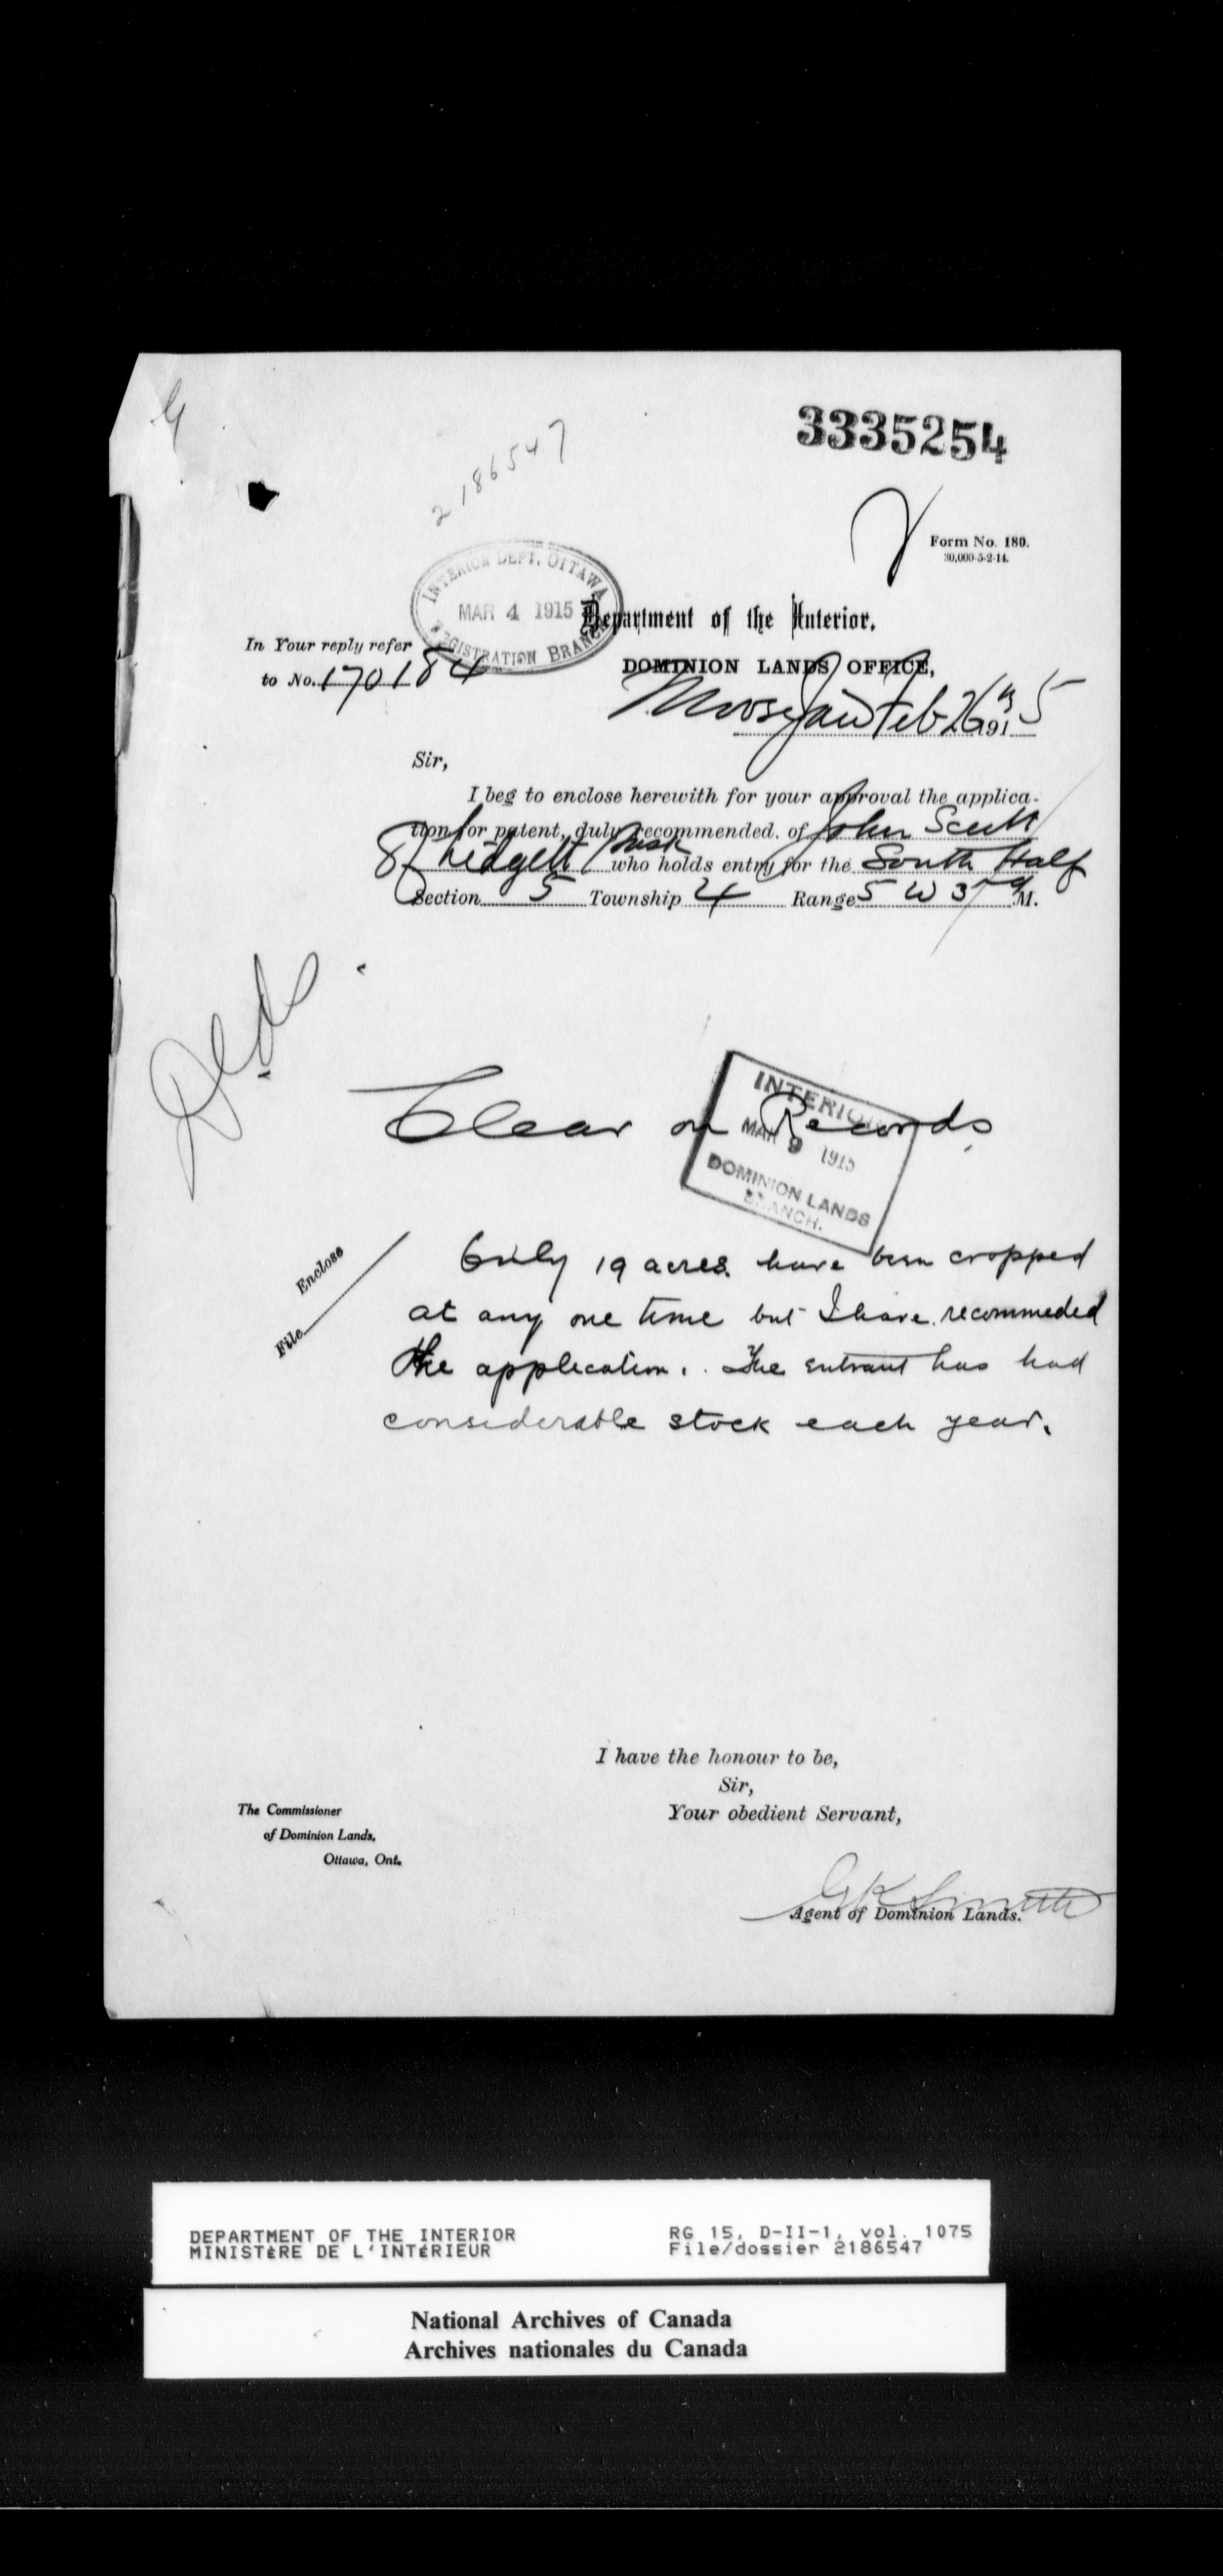 3335254
2186547
Form No. 180.
30,000-5-2-14.
INTERIOR DEPT. OTTAWA
MAR 4 1915
REGISTRATION BRANCH
Department of the Interior.
In Your reply refer
to No. 170184
DOMINION LANDS OFFICE,
Moosejaw Feb 26th 1915
Sir,
I beg to enclose herewith for your approval the applica-
tion for patent, duly recommended, of John Scott
of Lidgett Sask who holds entry for the South Half
Section 5 Township 4 Range 5 W 3rd M.
Clear on Records
INTERIOR
MAR 9 1915
DOMINION LANDS
BRANCH.
Enclose
File
Only 19 acres have been cropped
at any one time but I have recommeded
the application. The entrant has had
considerable stock each year.
I have the honour to be,
Sir,
Your obedient Servant,
The Commissioner
of Dominion Lands,
Ottawa, Ont.
G K Smith
Agent of Dominion Lands.
DEPARTMENT OF THE INTERIOR
MINISTÈRE DE L'INTÉRIEUR
RG 15, D-II-1, vol. 1075
File/dossier 2186547
National Archives of Canada
Archives nationales du Canada